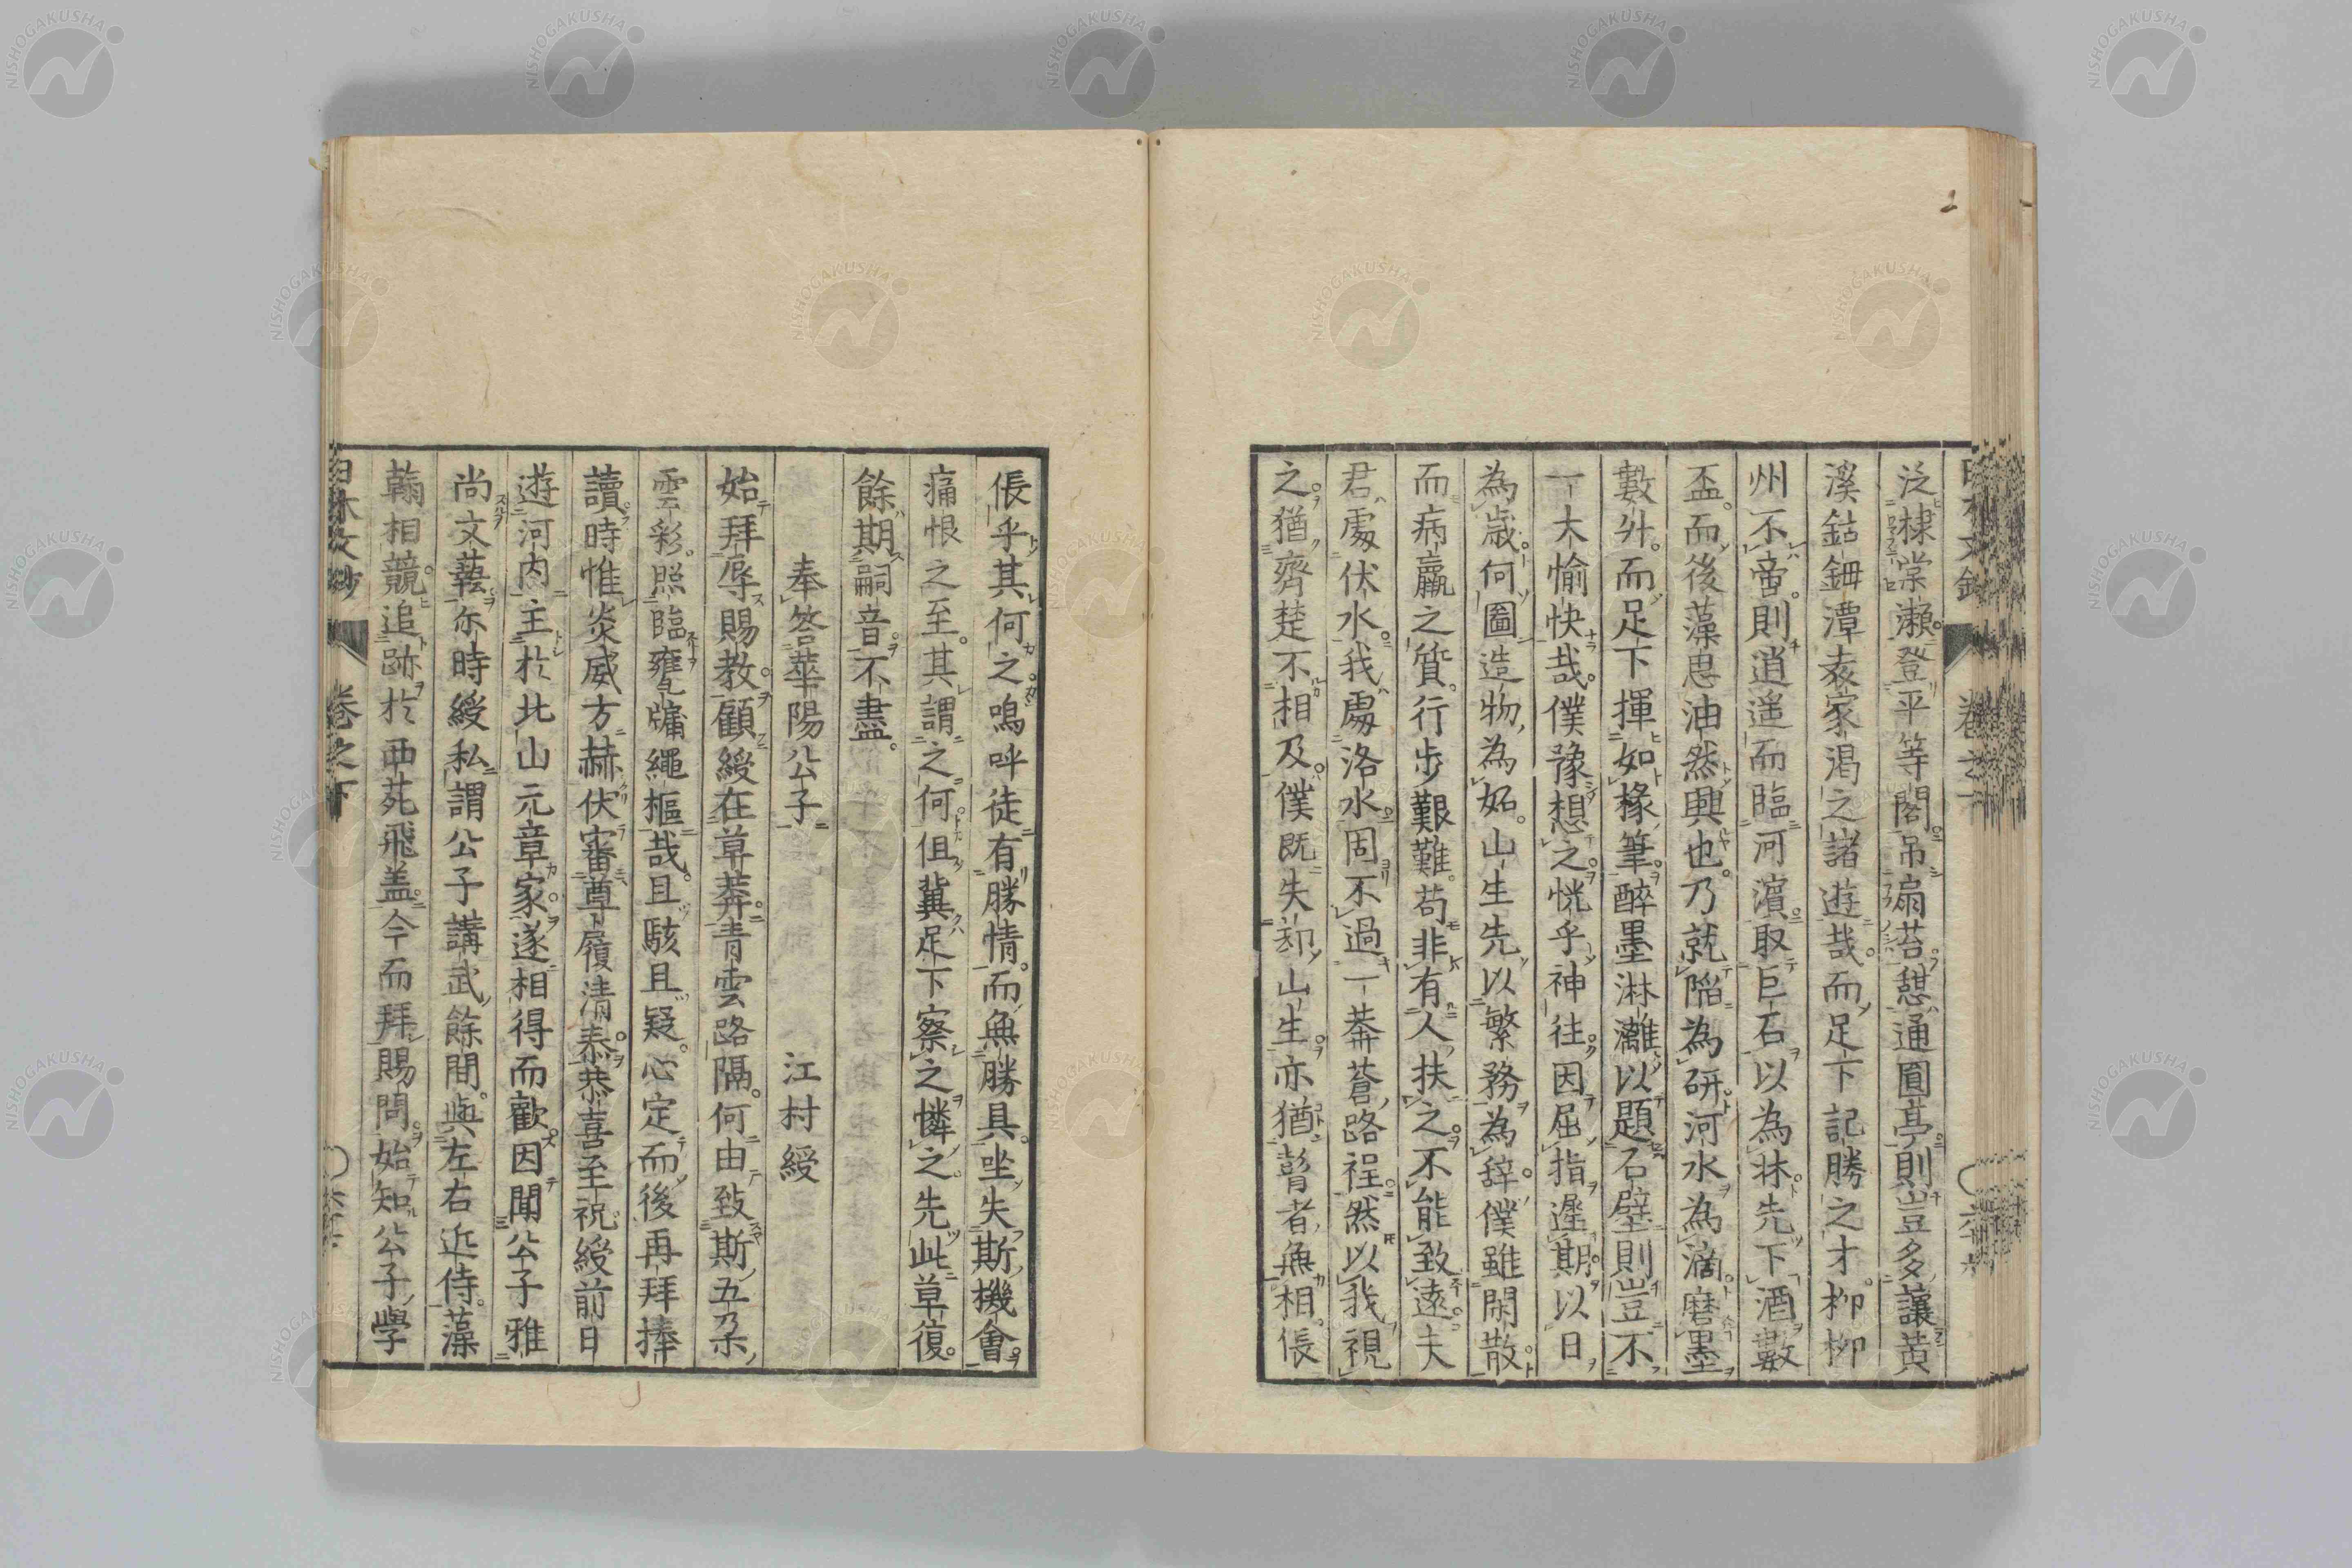 泛棣棠瀬登平等閣弔扇苔憇通圓亭則豈多讓黄
溪鈷鉧潭袁家渇之諸遊哉而足下記勝之才柳柳
州不啻則逍遥而臨河濵取巨石以為牀先下酒數
盃而後藻思油然興也乃就陥為研河水為滴磨墨
數升而足下揮如椽筆醉墨淋灕以題石壁則豈不
一大愉快哉僕豫想之恍乎神往因屈指遲期以日
為歳何圖造物為妬山生先以繁務為辞僕雖閑散
而病羸之質行歩艱難苟非有人扶之不能致遠夫
君處伏水我處洛水固不過一莽蒼路程然以我視
之猶齊楚不相及僕既失卻山生亦猶瞽者無相倀
倀乎其何之嗚呼徒有勝情而無勝具坐失斯機會
痛恨之至其謂之何伹冀足下察之憐之先此草復
餘期嗣音不盡
奉答華陽公子 江村綬
始拜辱賜教顧綬在草莽青雲路隔何由致斯五朶
雲彩照臨甕牖繩樞哉且駭且疑心定而後再拜捧
讀時惟炎威方赫伏審尊履清泰恭喜至祝綬前日
遊河内主於北山元章家遂相得而歡因聞公子雅
尚文藝亦時綬私謂公子講武餘間與左右近侍藻
翰相競追跡於西苑飛盖今而拜賜問始知公子學
卷之下
NISHOGAKUSHA